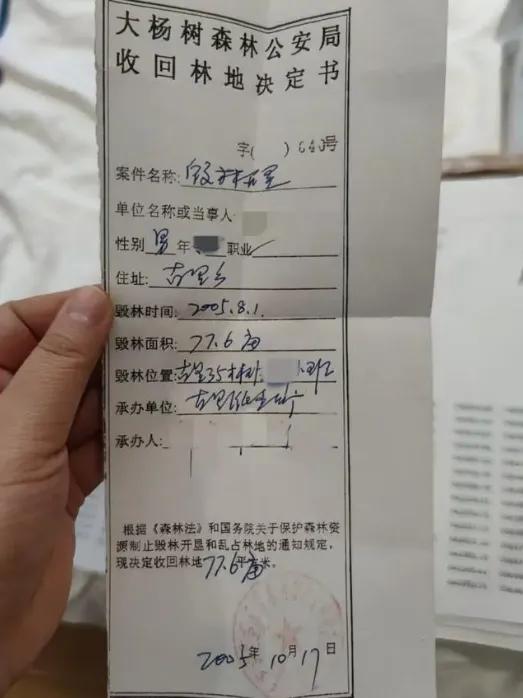 大杨树森林公安局
收回林地决定书
字( )640号
案件名称:毁林开垦
单位名称或当事人
性别 男 年 职业
住址: 古里乡
毁林时间: 2005.8.1.
毁林面积: 77.6亩
毁林位置: 古里35林班
承办单位: 古里
承办人:
根据《森林法》和国务院关于保护森林资
源制止毁林开垦和乱占林地的通知规定,
现决定收回林地 77.6平亩米。
2005年10月17日